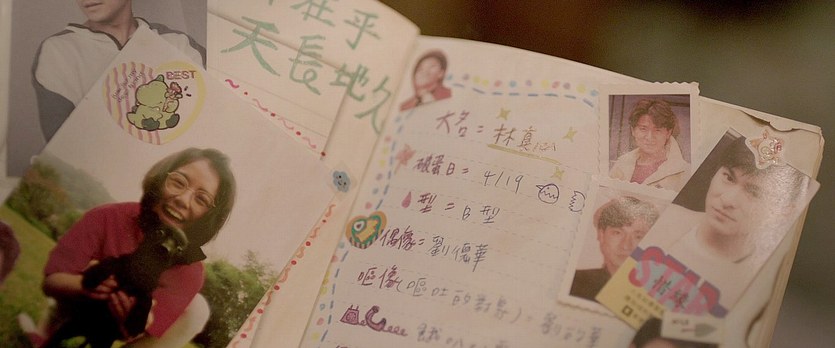 在乎
天長地久
BEST
大名=林真心
破蛋日= 4/19
型=B型
偶像=劉德華
嘔像(嘔吐的對象):劉的華
STAR